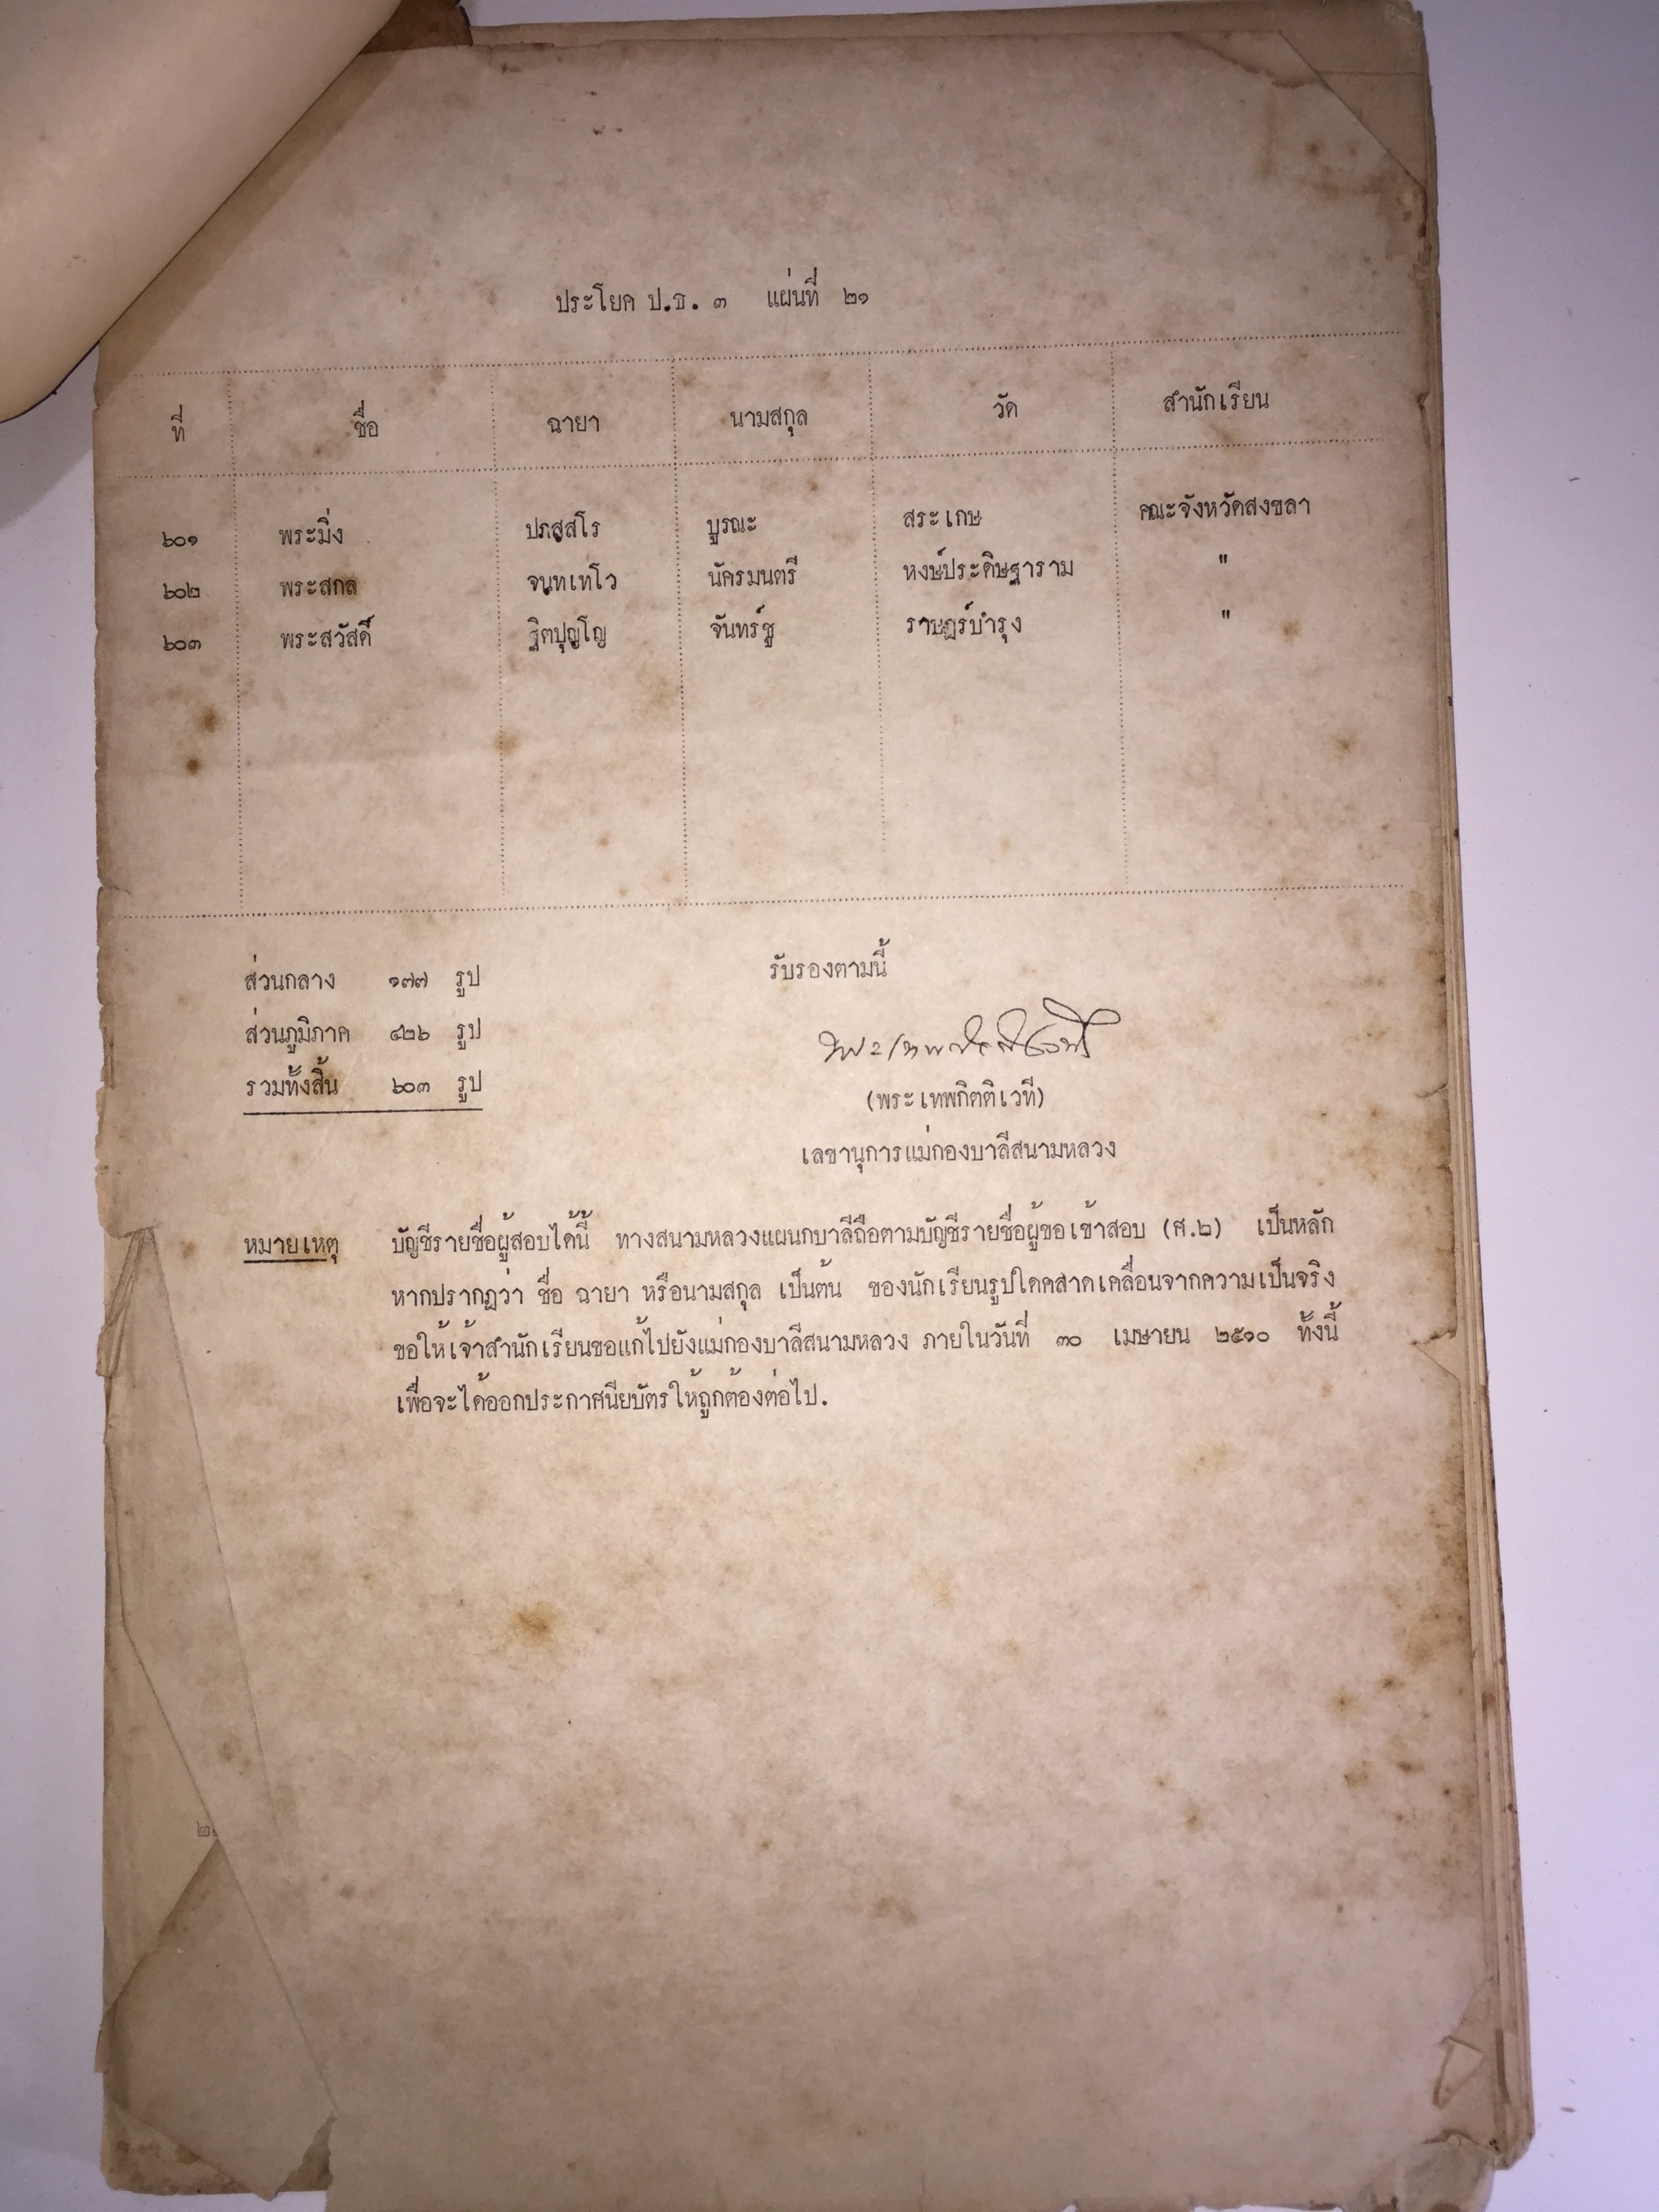 ประโยค ป.ธ. ๓ แผ่นที่ ๒๑
ที่ ชื่อ ฉายา นามสกุล วัด สำนักเรียน
๖๐๑ พระมิ่ง ปภสฺสโร บูรณะ สระเกษ คณะจังหวัดสงขลา
๖๐๒ พระสกล จนฺทเทโว นัครมนตรี หงษ์ประดิษฐาราม "
๖๐๓ พระสวัสดิ์ ฐิตปุญฺโญ จันทร์ชู ราษฎร์บำรุง "
ส่วนกลาง ๑๗๗ รูป
ส่วนภูมิภาค ๔๒๖ รูป
รวมทั้งสิ้น ๖๐๓ รูป
รับรองตามนี้
(พระเทพกิตติเวที)
เลขานุการแม่กองบาลีสนามหลวง
หมายเหตุ บัญชีรายชื่อผู้สอบได้นี้ ทางสนามหลวงแผนกบาลีถือตามบัญชีรายชื่อผู้ขอเข้าสอบ (ศ.๒) เป็นหลัก
หากปรากฏว่า ชื่อ ฉายา หรือนามสกุล เป็นต้น ของนักเรียนรูปใดคลาดเคลื่อนจากความเป็นจริง
ขอให้เจ้าสำนักเรียนขอแก้ไปยังแม่กองบาลีสนามหลวง ภายในวันที่ ๓๐ เมษายน ๒๕๑๐ ทั้งนี้
เพื่อจะได้ออกประกาศนียบัตรให้ถูกต้องต่อไป.